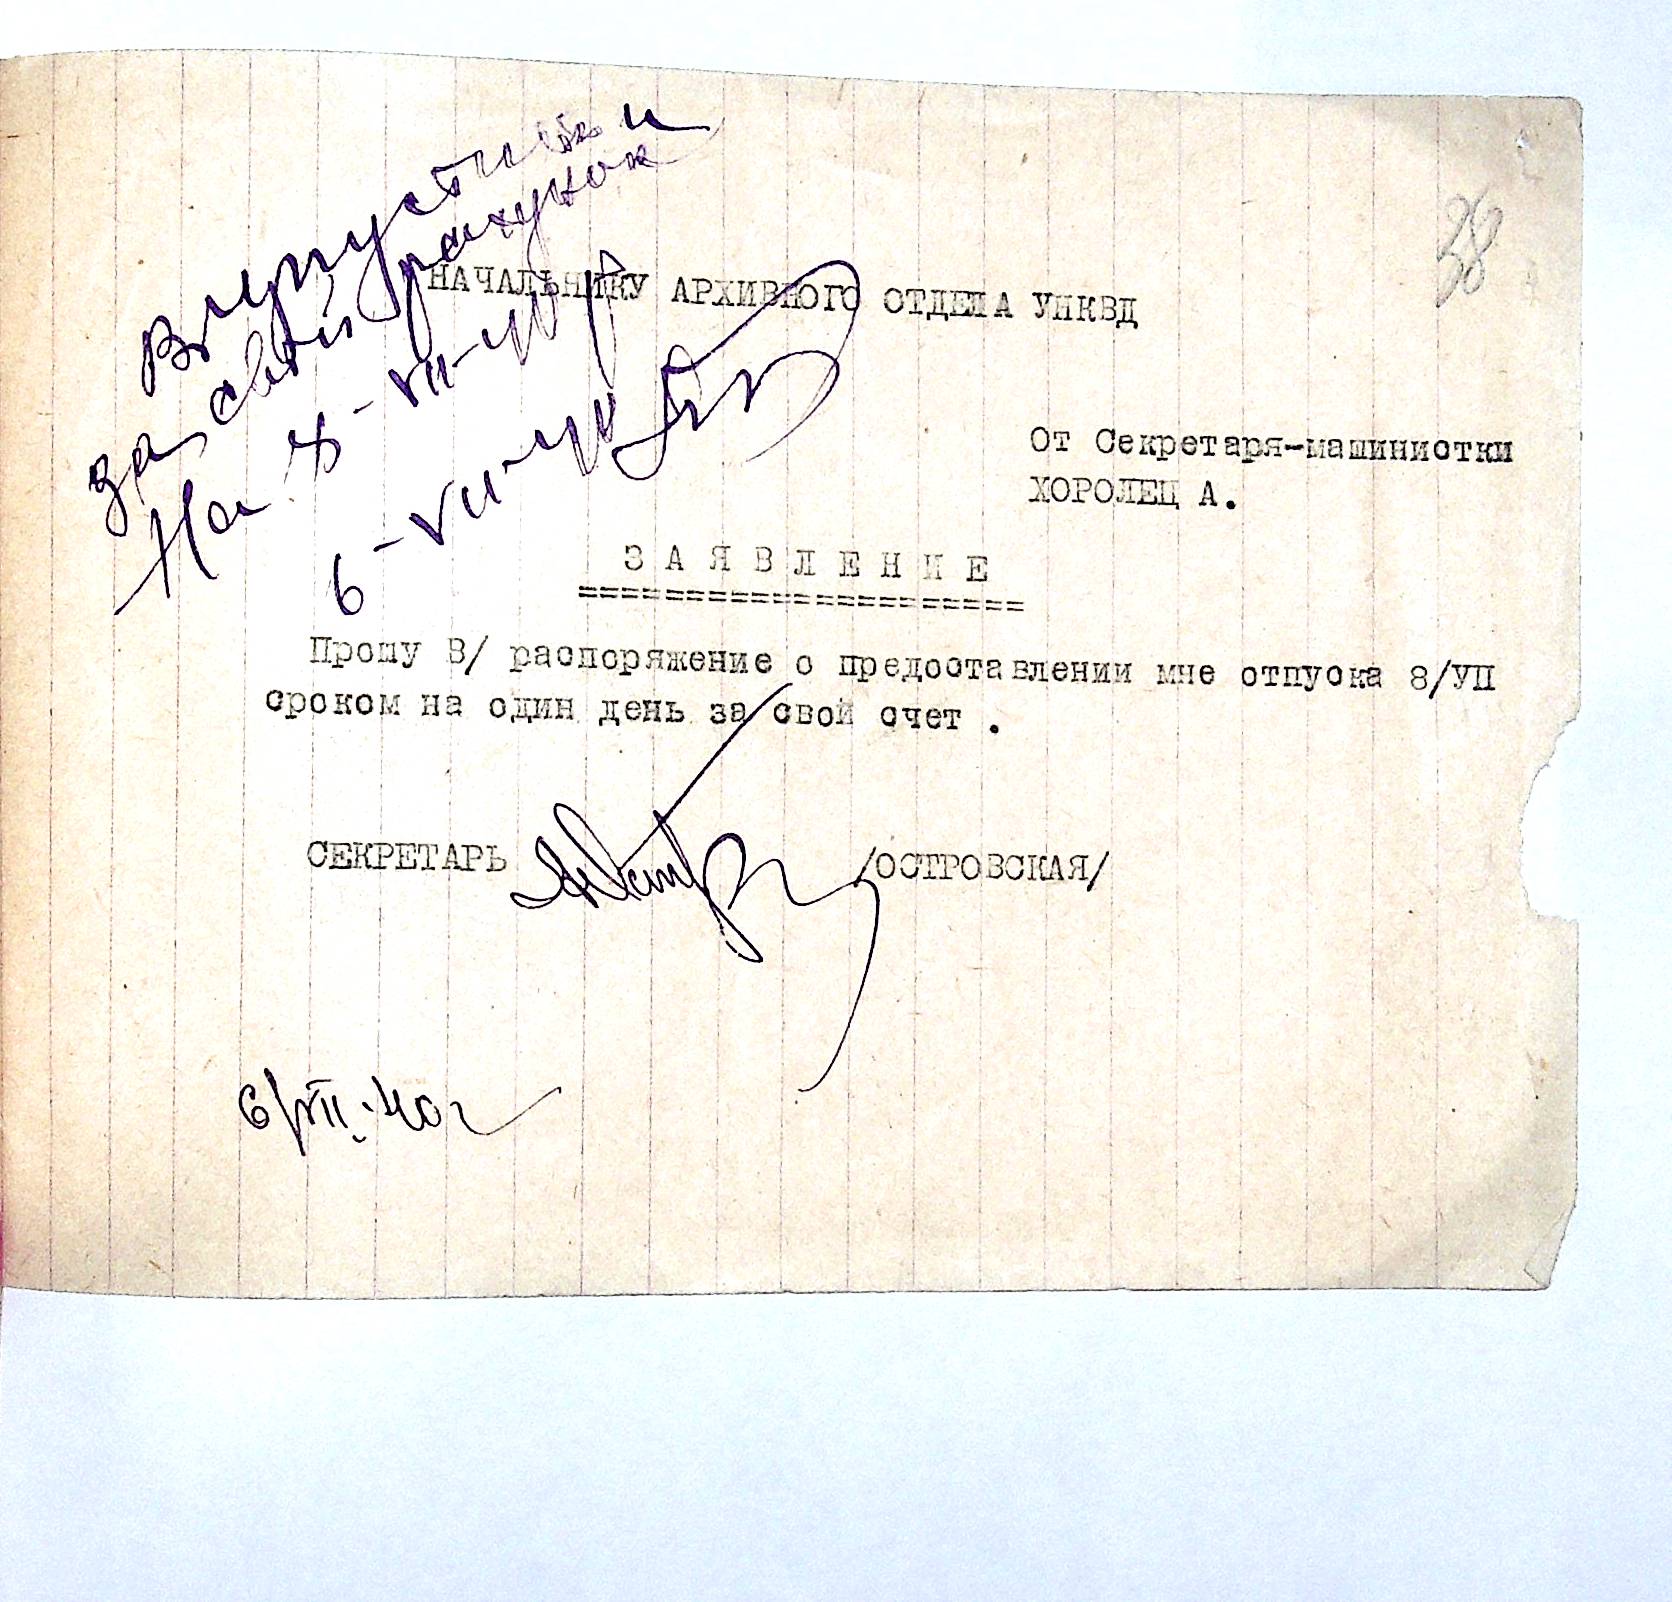 38
Вгупустити
за свій рахунок
На 8-VII-40 р
6-VII-40
НАЧАЛЬНИКУ АРХИВНОГО ОТДЕЛА УНКВД
От Секретаря-машинистки
ХОРОЛЕЦ А.
ЗАЯВЛЕНИЕ
====================
Прошу В/ распоряжение о предоставлении мне отпуска 8/УП
сроком на один день за свой счет .
СЕКРЕТАРЬ /ОСТРОВСКАЯ/
6/VII.40г